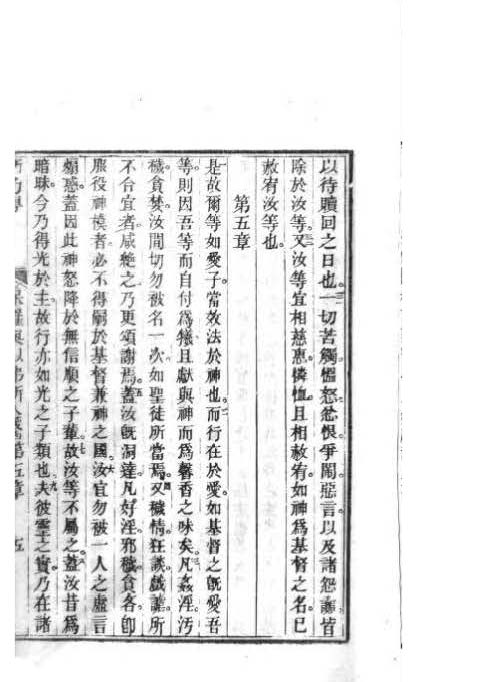 以待贖回之日也一切苦觸慍怒忿恨爭鬧惡言以及諸怨讟皆
除於汝等又汝等宜相慈惠憐恤且相赦宥如神為基督之名已
赦宥汝等也
第五章
是故爾等如愛子當效法於神也而行在於愛如基督之旣愛吾
等則因吾等而自付為犧且獻與神而為馨香之味矣凡姦淫汚
穢貪婪汝間切勿被名一次如聖徒所當焉又穢情狂談戲謔所
不合宜者咸棄之乃更頌謝焉蓋汝旣洞達凡好淫邪穢貪各卽
服役神模者必不得嗣於基督兼神之國汝宜勿被一人之虛言
煽惑蓋因此神怒降於無信順之子輩故汝等不屬之蓋汝昔為
暗昧今乃得光於主故行亦如光之子類也夫彼靈之實乃在諸
人第五章 五